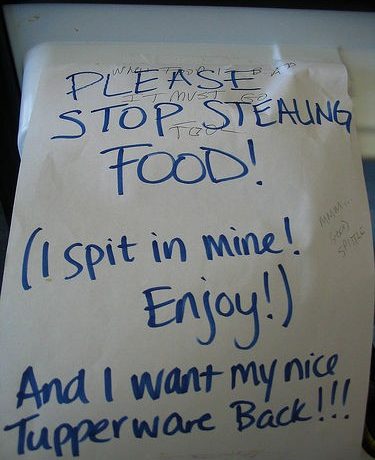 WHAT FOOD IS BAD
PLEASE
IT MUST GO
STOP STEALING
TOO
FOOD!
(I spit in mine!
Enjoy!)
MMM...
GOOD
SPITTLE
And I want my nice
Tupperware Back!!!